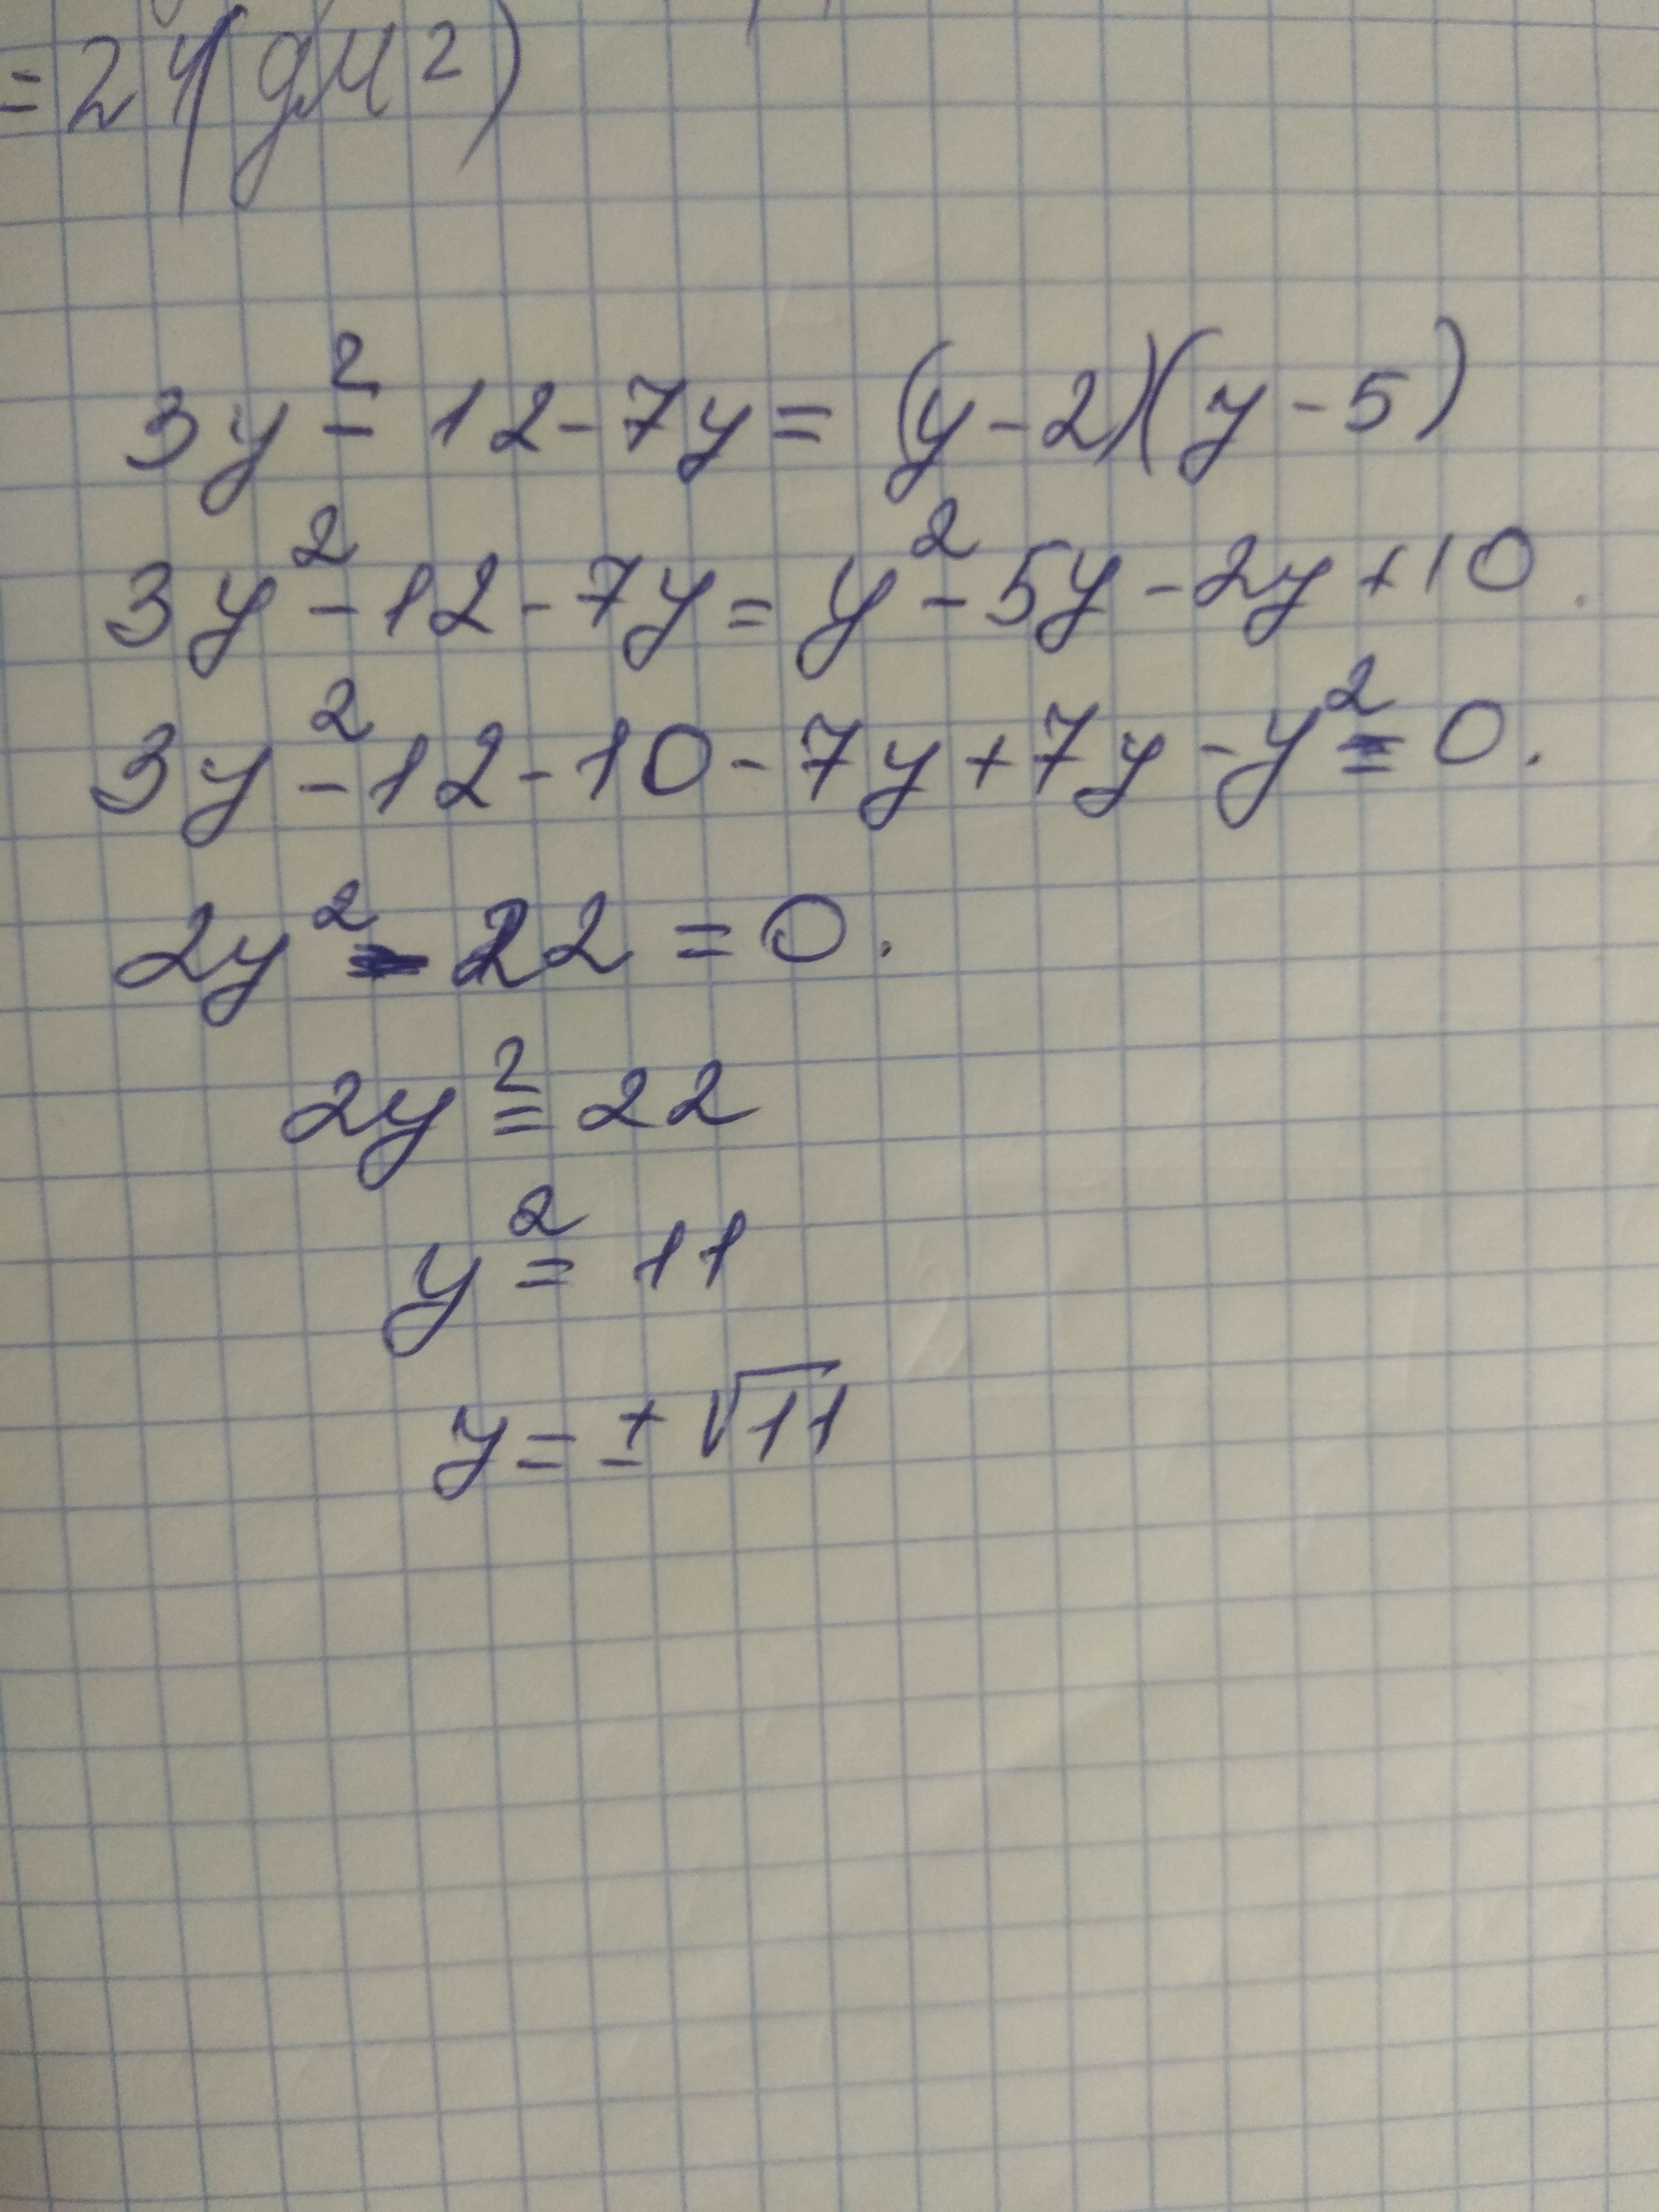 = 24(дм²)
3y² - 12 - 7y = (y - 2)(y - 5)
3y² - 12 - 7y = y² - 5y - 2y + 10.
3y² - 12 - 10 - 7y + 7y - y² = 0.
2y² - 22 = 0.
2y² = 22
y² = 11
y = ± √11